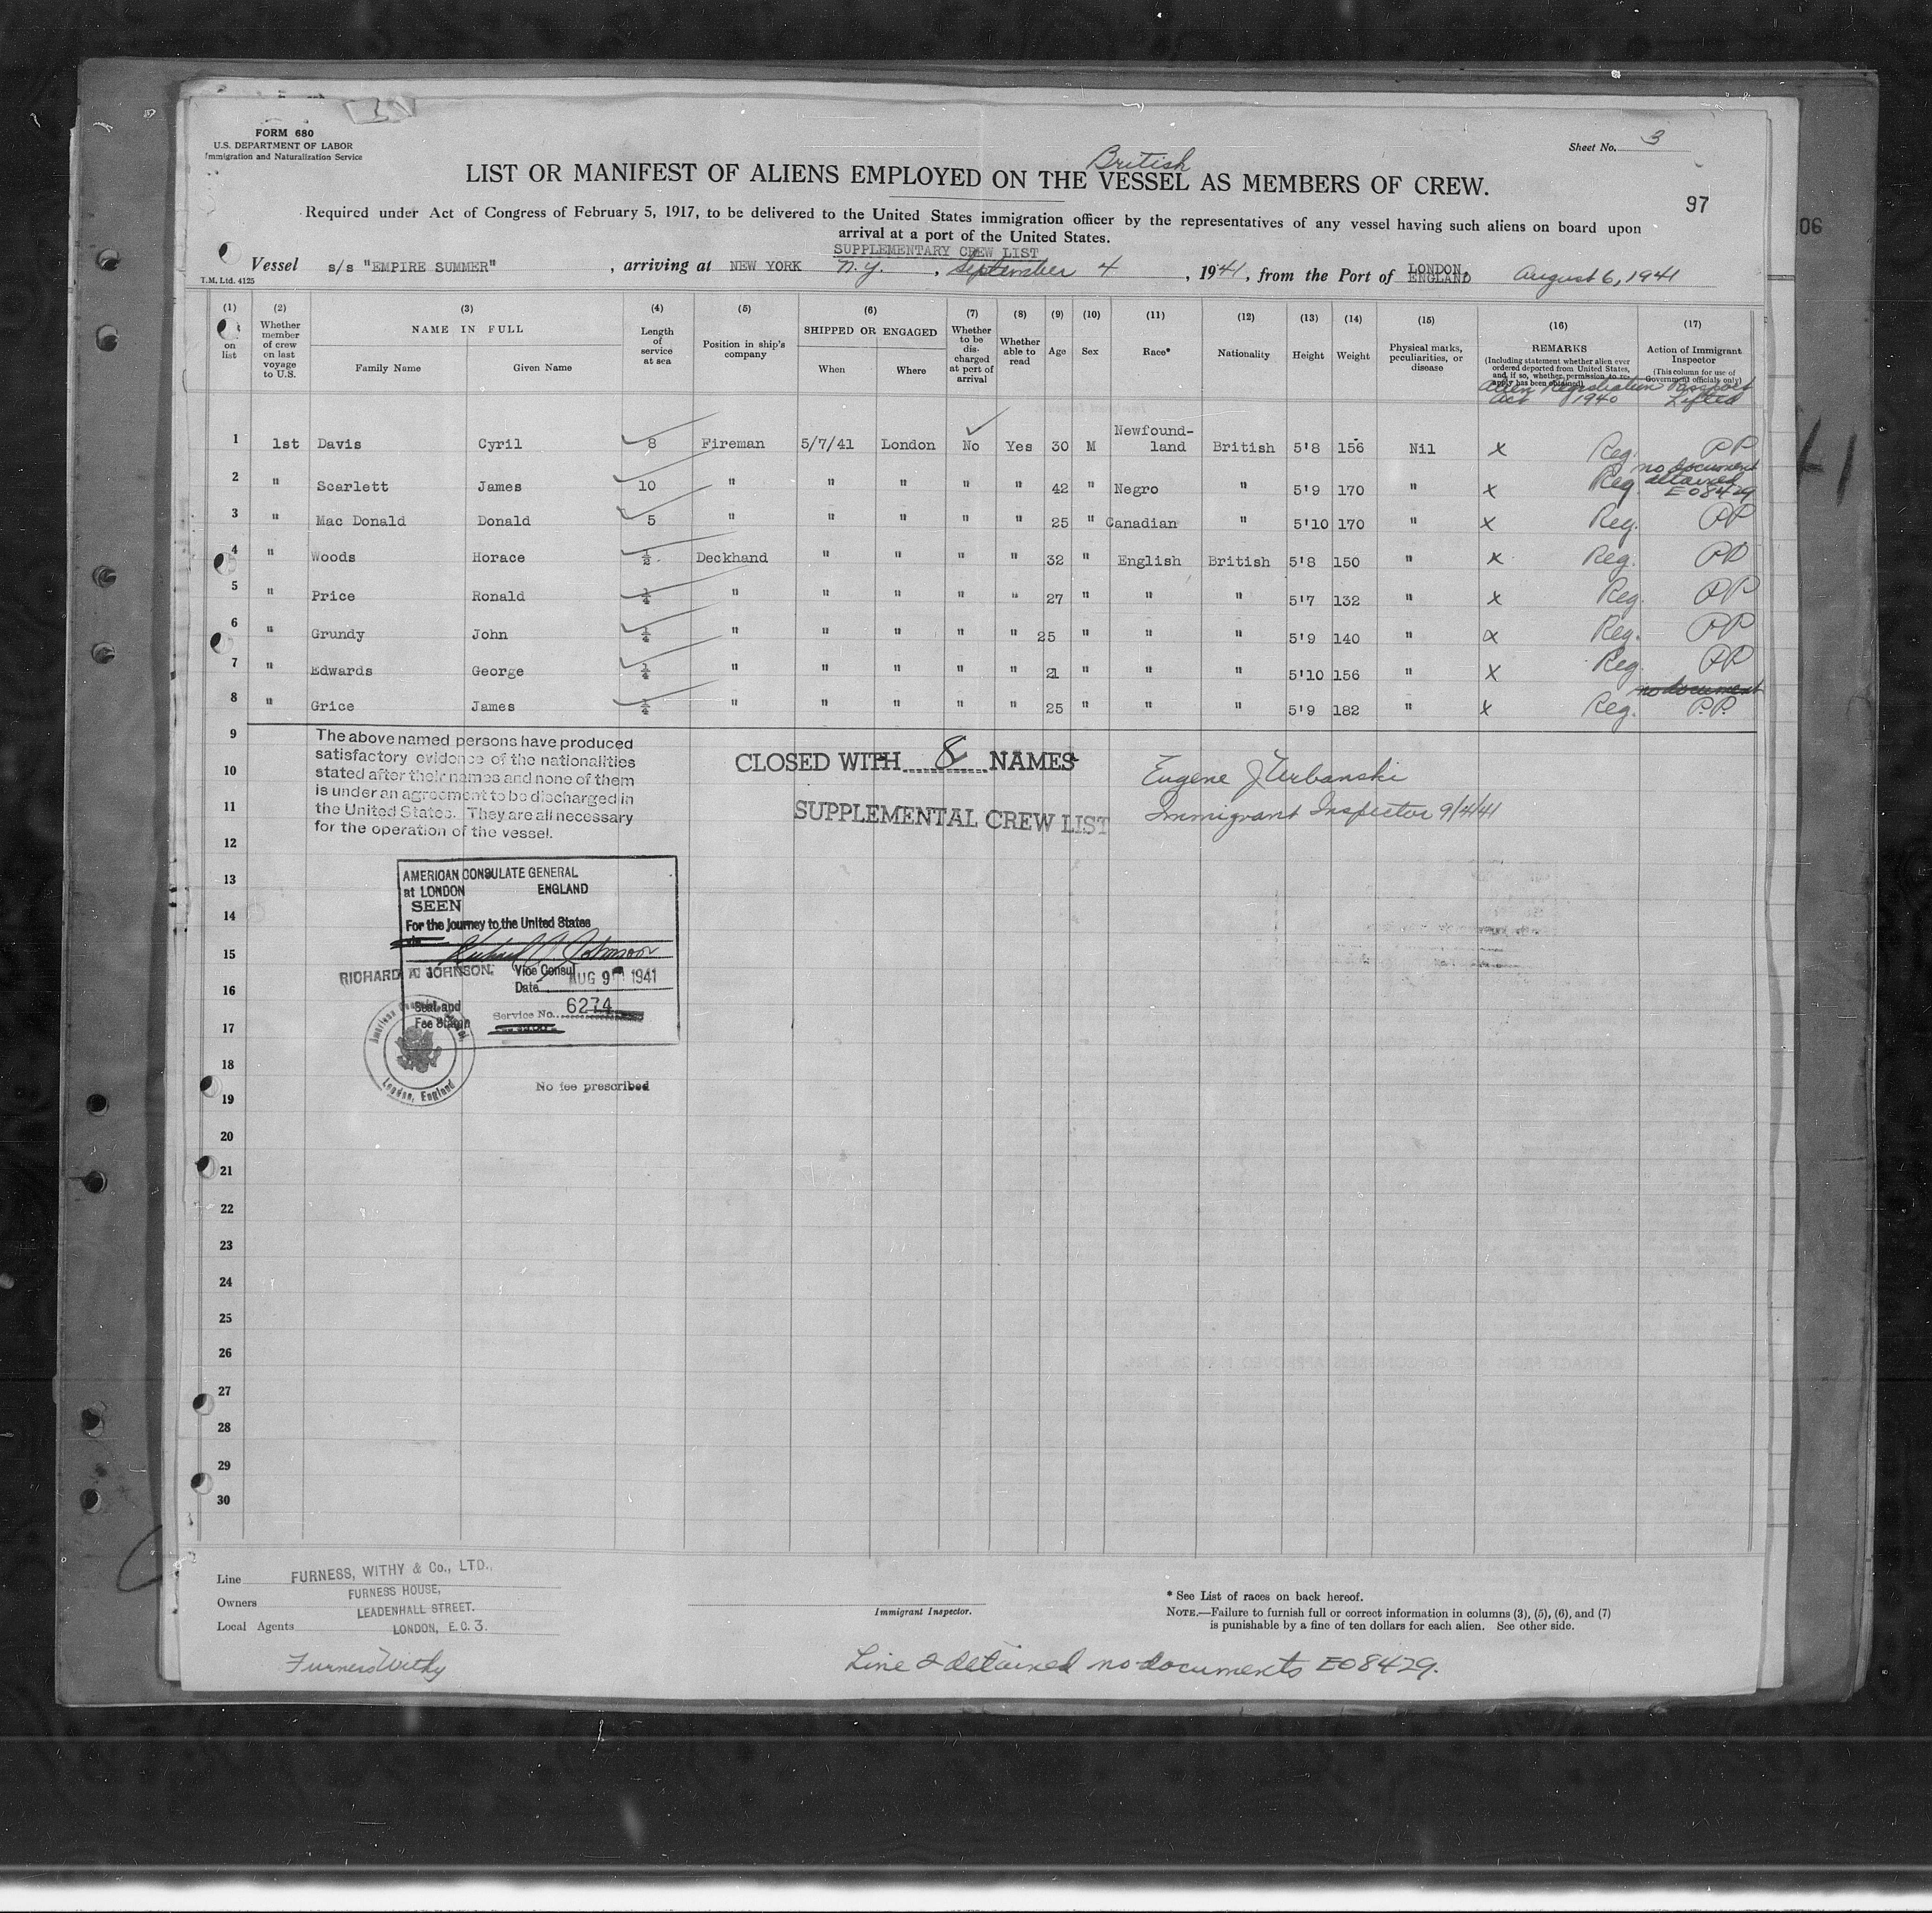 FORM 680
U.S. DEPARTMENT OF LABOR
Immigration and Naturalization Service
Sheet No. 3
British
LIST OR MANIFEST OF ALIENS EMPLOYED ON THE VESSEL AS MEMBERS OF CREW.
97
Required under Act of Congress of February 5, 1917, to be delivered to the United States immigration officer by the representatives of any vessel having such aliens on board upon
arrival at a port of the United States.
SUPPLEMENTARY CREW LIST
Vessel s/s "EMPIRE SUMMER", arriving at NEW YORK N.Y., September 4, 1941, from the Port of LONDON, ENGLAND August 6, 1941
T.M. Ltd. 4125
(1) on list (2) Whether member of crew on last voyage to U.S. (3) NAME IN FULL Family Name Given Name (4) Length of service at sea (5) Position in ship's company (6) SHIPPED OR ENGAGED When Where (7) Whether to be discharged at port of arrival (8) Whether able to read (9) Age (10) Sex (11) Race* (12) Nationality (13) Height (14) Weight (15) Physical marks, peculiarities, or disease (16) REMARKS (Including statement whether alien ever ordered deported from United States, and if so, whether permission to reapply has been obtained) (17) Action of Immigrant Inspector (This column for use of Government officials only)
Alien Registration Act 1940 Passport Lifted
1 1st Davis Cyril 8 Fireman 5/7/41 London No Yes 30 M Newfound-land British 5'8 156 Nil x Reg. PP
2 " Scarlett James 10 " " " " " 42 " Negro " 5'9 170 " x Reg. no document detained E08429
3 " Mac Donald Donald 5 " " " " " 25 " Canadian " 5'10 170 " x Reg. PP
4 " Woods Horace ½ Deckhand " " " " 32 " English British 5'8 150 " x Reg. PP
5 " Price Ronald ¼ " " " " " 27 " " " 5'7 132 " x Reg. PP
6 " Grundy John ¼ " " " " " 25 " " " 5'9 140 " x Reg. PP
7 " Edwards George ¼ " " " " " 21 " " " 5'10 156 " x Reg. PP
no document
8 " Grice James ¼ " " " " " 25 " " " 5'9 182 " x Reg. P.P.
9
10
11
12
13
14
15
16
17
18
19
20
21
22
23
24
25
26
27
28
29
30
The above named persons have produced
satisfactory evidence of the nationalities
stated after their names and none of them
is under an agreement to be discharged in
the United States. They are all necessary
for the operation of the vessel.
CLOSED WITH 8 NAMES
SUPPLEMENTAL CREW LIST
Eugene J Urbanski
Immigrant Inspector 9/4/41
AMERICAN CONSULATE GENERAL
at LONDON ENGLAND
SEEN
For the journey to the United States
Richard A. Johnson
RICHARD A. JOHNSON. Vice Consul
Date AUG 9 1941
Seal and
Fee Stamp
Service No. 6274
London, England
No fee prescribed
Line FURNESS, WITHY & Co., LTD.,
Owners FURNESS HOUSE,
LEADENHALL STREET.
Local Agents LONDON, E.C.3.
Furness Withy
Immigrant Inspector.
* See List of races on back hereof.
NOTE.—Failure to furnish full or correct information in columns (3), (5), (6), and (7)
is punishable by a fine of ten dollars for each alien. See other side.
Line 2 detained no documents E08429.